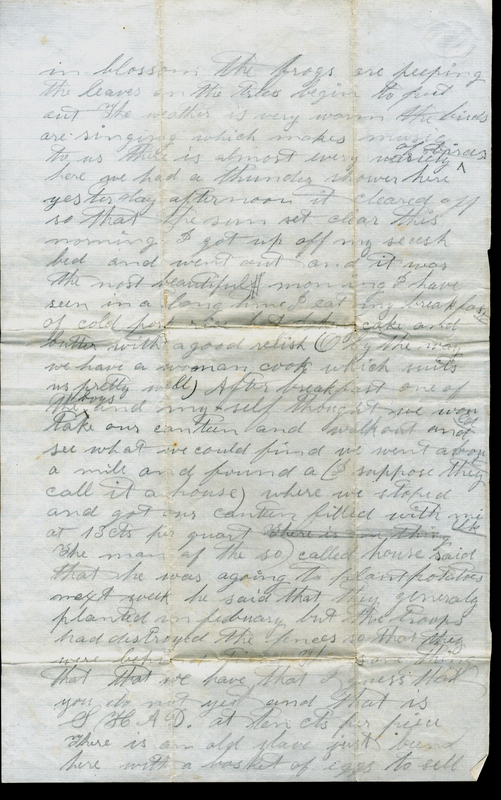 in blossom the frogs are peeping
the leaves on the trees begin to put
out The weather is very warm the birds
are singing which makes music
to us there is almost every variety of birds
here we had a thunder shower here
yesterday afternoon it cleared off
so that the sun set clear this
morning I got up off my secesh
bed and went out and it was
the most beautiful morning I have
seen in a long time I eat my breakfast
of cold pork cake and
butter with a good relish (O by the way
we have a woman cook which suits
us pretty well) After breakfast one of
the boys and my self thought we would
take our canteen and walk out and
see what we could find we went about
a mile and found a (I suppose they
call it a house) where we stoped
and got our canteen filled with milk
at 13 cts per quart There is
The man of the so) called house said
that he was agoing to plant potatoes
next week he said that they generaly
planted in february but the troops
had destroyed the fences so that they
were some thing
that that we have that I guess that
you do not yet and that is
S. H. A. D. at ten cts per piece
There is an old slave just been
here with a basket of eggs to sell